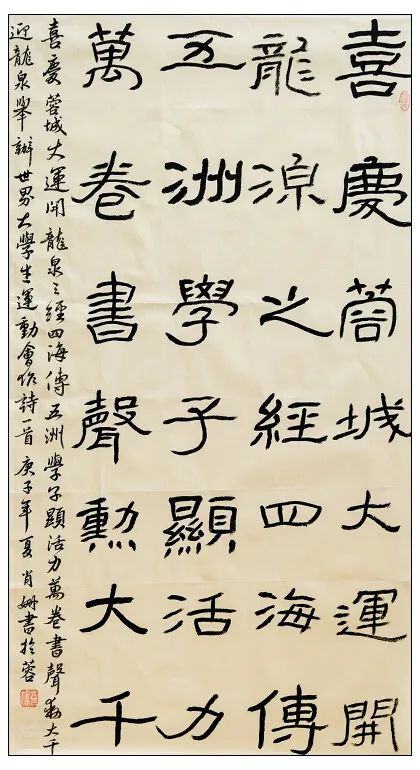 喜慶蓉城大運開
龍源之經四海傳
五洲學子顯活力
萬卷書聲勳大千
喜慶蓉城大運開龍泉之經四海傳五洲學子顯活力萬卷書聲大千
迎龍泉舉辦世界大學生運動會作詩一首庚子年夏肖姍書於蓉